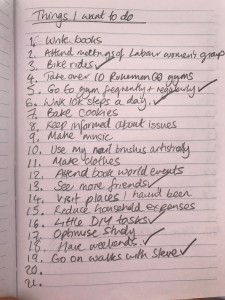 Things I want to do
1. Write books
2. Attend meetings of Labour women's group
3. Bike rides ✓
4. Take over 10 Pokemon GO gyms
5. Go to gym frequently + regularly ✓
6. Walk 10k steps a day. ✓
7. Bake cookies
8. Keep informed about issues
9. Make music
10. Use my nail brushes artistically
11. Make clothes
12. Attend book world events
13. See more friends ✓
14. Visit places I haven't been
15. Reduce household expenses
16. Little DIY tasks ✓
17. Optimise study ✓
18. Have weekends. ✓
19. Go on walks with Steve ✓
20.
21.